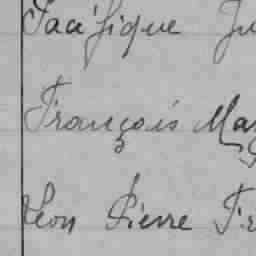 Pacifique Ju
François Ma
Léon Pierre Fr